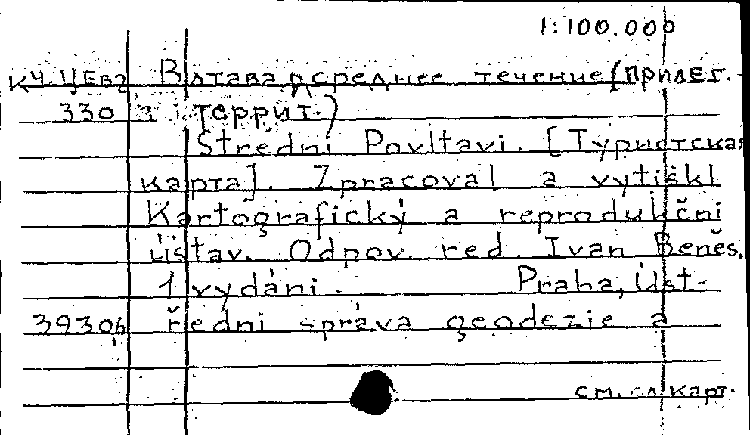 1:100.000
К4.ЦЕв2 Влтава, р. среднее течение (прилег.
330 террит.)
Střední Povltaví. [Туристская
карта]. Zpracoval a vytiskl
Kartografický a reprodukční
ústav. Odpov. red. Ivan Beneš.
1 vydání. Praha, Úst-
39306 řední správa geodezie a
см. сл. карт.